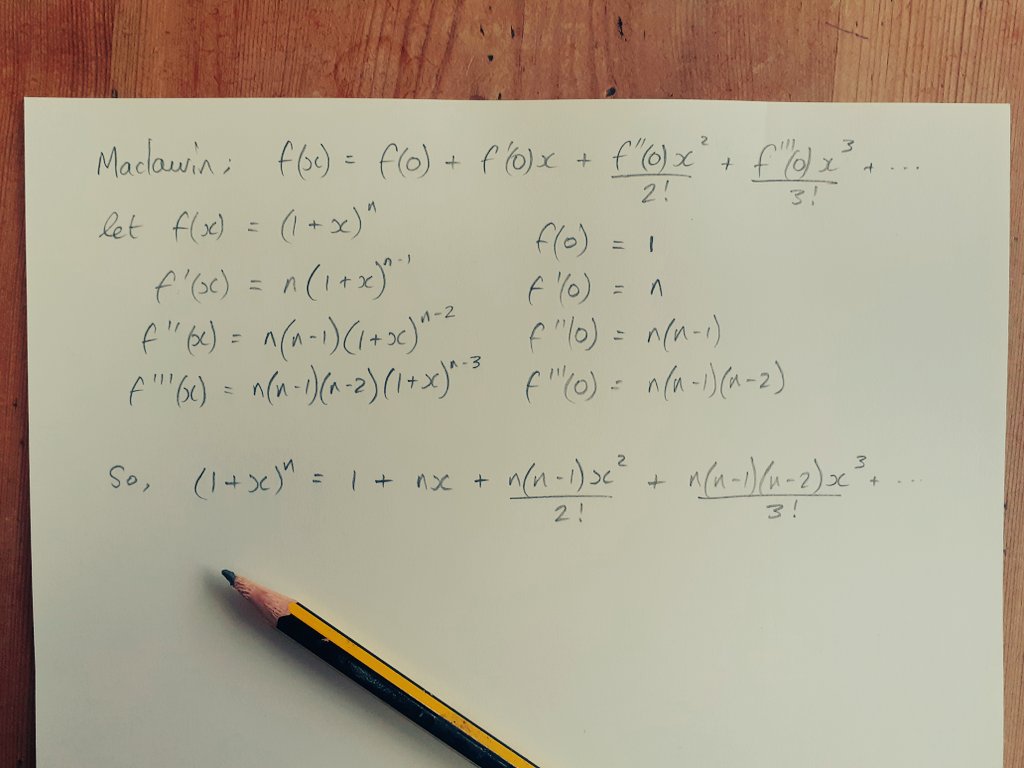 Maclaurin: f(x) = f(0) + f'(0)x + f''(0)x²/2! + f'''(0)x³/3! + ...
let f(x) = (1+x)ⁿ f(0) = 1
f'(x) = n(1+x)ⁿ⁻¹ f'(0) = n
f''(x) = n(n-1)(1+x)ⁿ⁻² f''(0) = n(n-1)
f'''(x) = n(n-1)(n-2)(1+x)ⁿ⁻³ f'''(0) = n(n-1)(n-2)
So, (1+x)ⁿ = 1 + nx + n(n-1)x²/2! + n(n-1)(n-2)x³/3! + ...